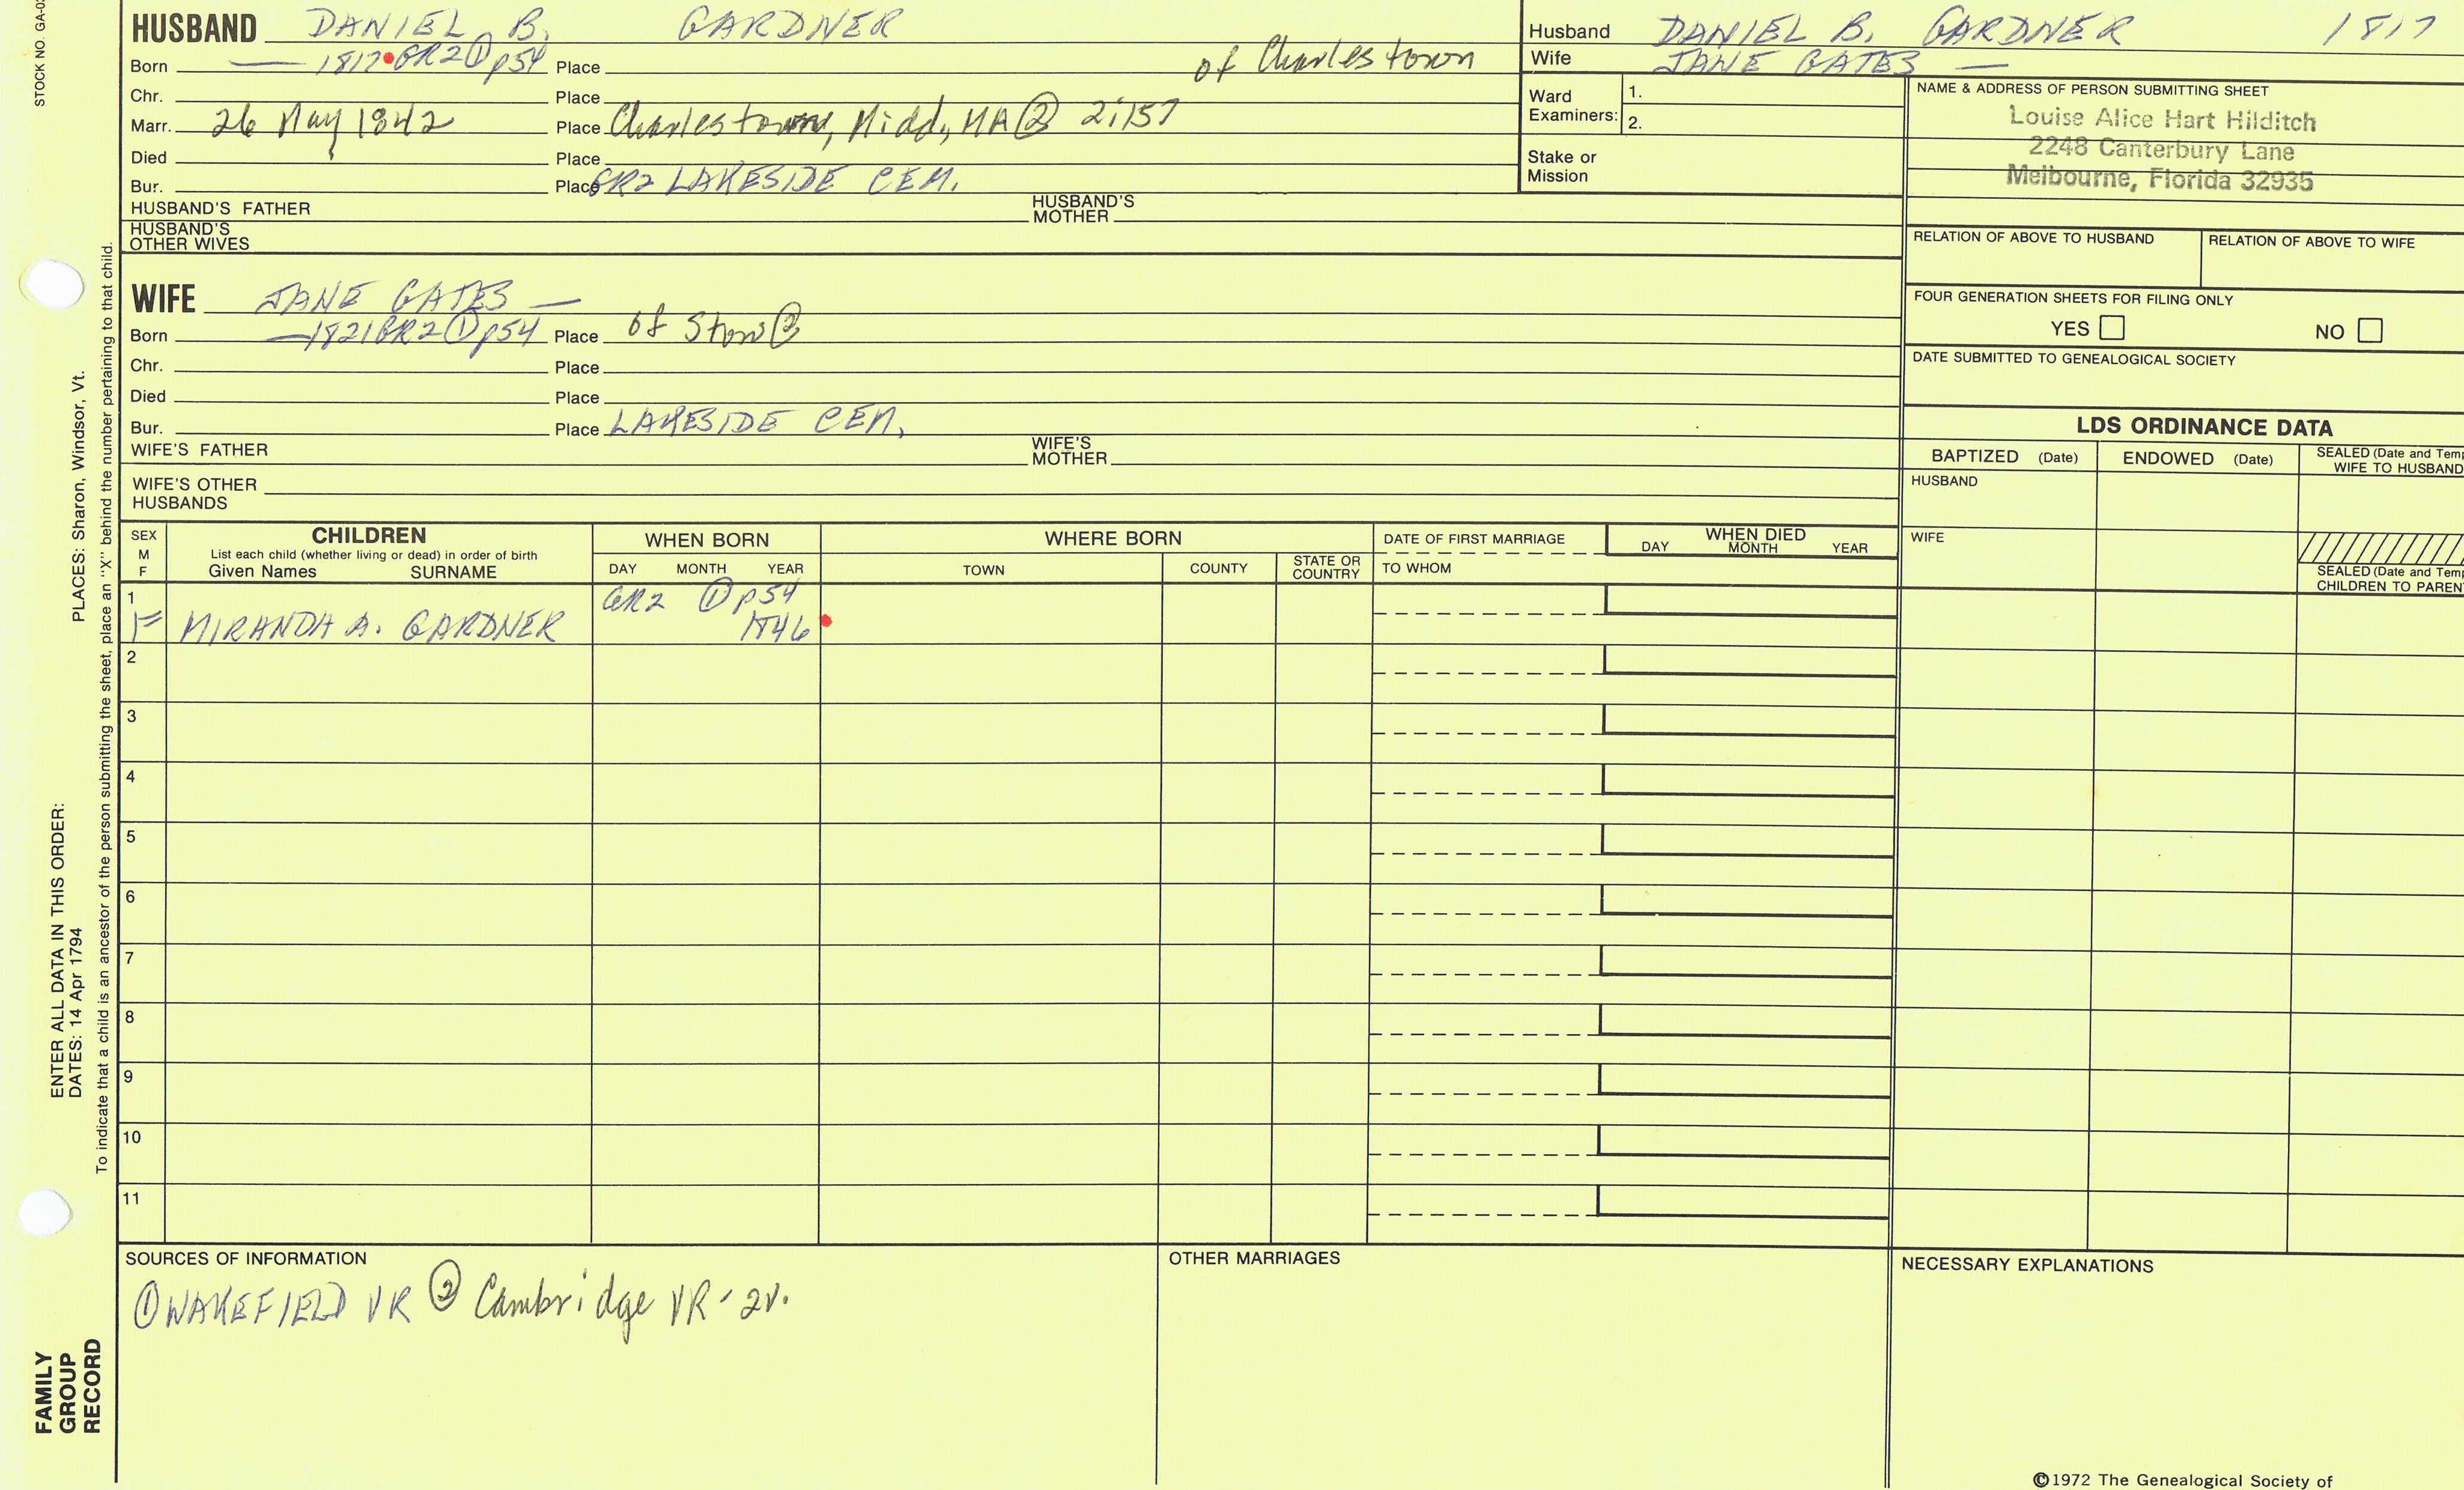 STOCK NO. GA-0
HUSBAND DANIEL B. GARDNER
Born — 1817 GR2 ① p54 Place of Charlestown
Chr. Place
Marr. 26 May 1842 Place Charlestown, Midd, MA ② 2:157
Died Place
Bur. Place GR2 LAKESIDE CEM.
HUSBAND'S FATHER HUSBAND'S MOTHER
HUSBAND'S OTHER WIVES
Husband DANIEL B. GARDNER 1817
Wife JANE GATES —
Ward Examiners: 1.
2.
Stake or Mission
NAME & ADDRESS OF PERSON SUBMITTING SHEET
Louise Alice Hart Hilditch
2248 Canterbury Lane
Melbourne, Florida 32935
RELATION OF ABOVE TO HUSBAND RELATION OF ABOVE TO WIFE
FOUR GENERATION SHEETS FOR FILING ONLY
YES NO
DATE SUBMITTED TO GENEALOGICAL SOCIETY
WIFE JANE GATES —
Born — 1821 GR2 ① p54 Place of Stow ②
Chr. Place
Died Place
Bur. Place LAKESIDE CEM.
WIFE'S FATHER WIFE'S MOTHER
WIFE'S OTHER HUSBANDS
LDS ORDINANCE DATA
BAPTIZED (Date) ENDOWED (Date) SEALED (Date and Temp
WIFE TO HUSBAND
HUSBAND
WIFE
SEALED (Date and Temp
CHILDREN TO PAREN
SEX M F
CHILDREN
List each child (whether living or dead) in order of birth
Given Names SURNAME
WHEN BORN
DAY MONTH YEAR
WHERE BORN
TOWN COUNTY STATE OR COUNTRY
DATE OF FIRST MARRIAGE
TO WHOM
WHEN DIED
DAY MONTH YEAR
1 GR2 ① p54
F MIRANDA A. GARDNER 1846
2
3
4
5
6
7
8
9
10
11
SOURCES OF INFORMATION
① WAKEFIELD VR ② Cambridge VR - 2v.
OTHER MARRIAGES
NECESSARY EXPLANATIONS
©1972 The Genealogical Society of
PLACES: Sharon, Windsor, Vt.
ENTER ALL DATA IN THIS ORDER:
DATES: 14 Apr 1794
To indicate that a child is an ancestor of the person submitting the sheet, place an "X" behind the number pertaining to that child.
FAMILY
GROUP
RECORD